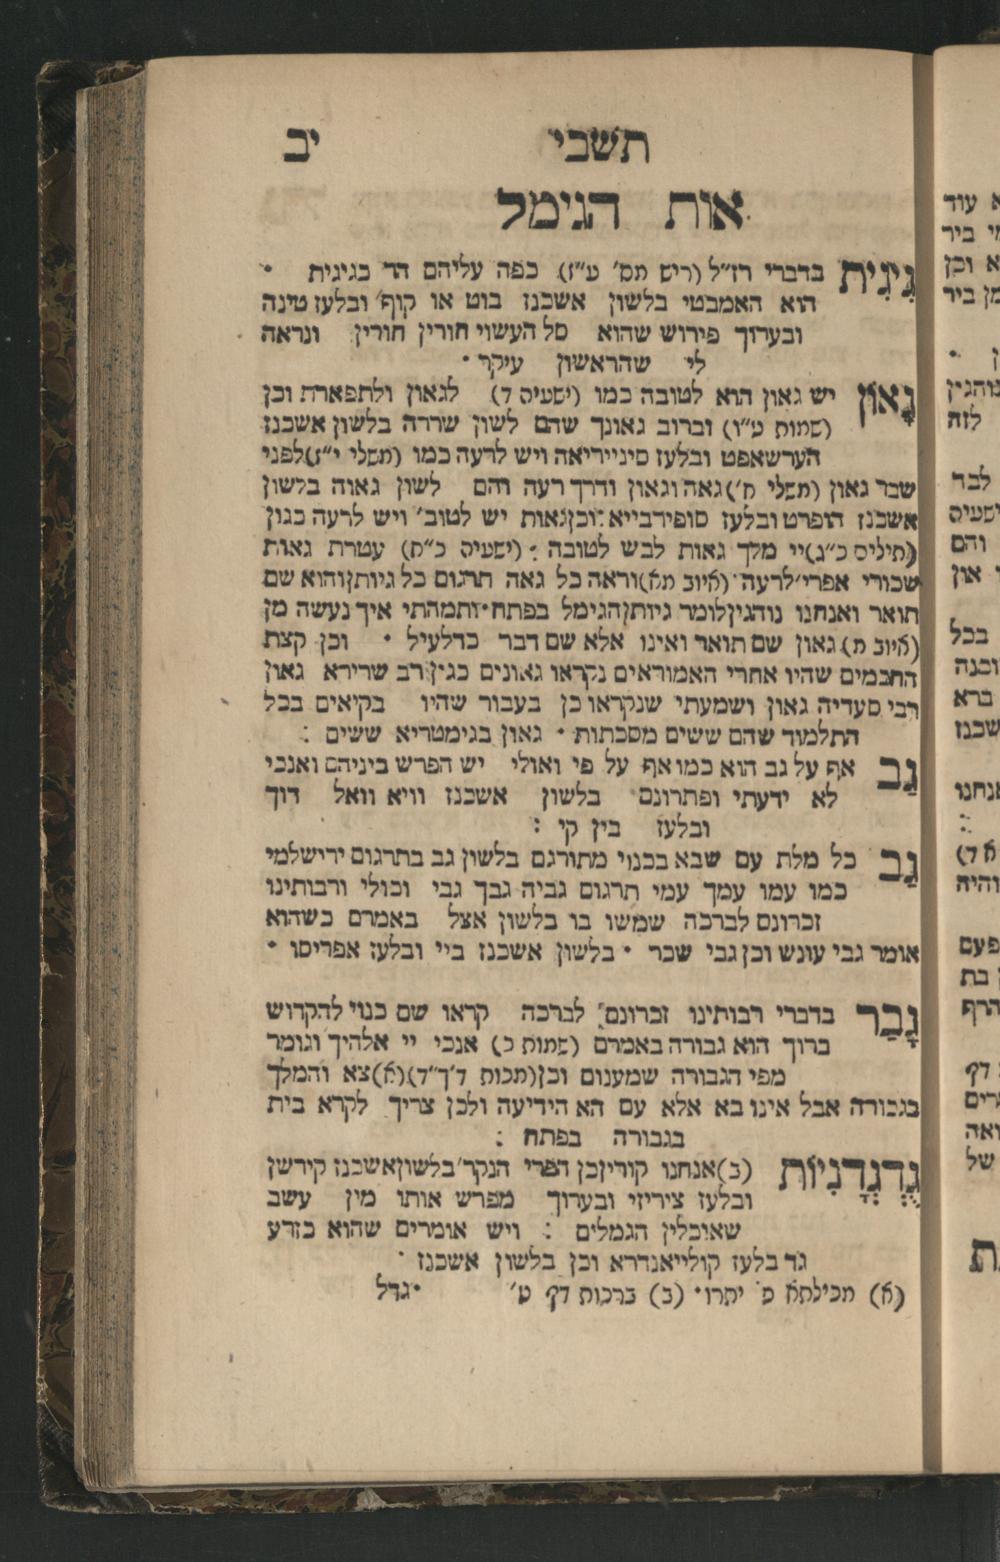 תשבי יב
אות הגימל
גיגית בדברי רז״ל (ריש מס׳ ע״ז) כפה עליהם הר כגיגית •
הוא האמבטי בלשון אשכנז בוט או קוף ובלעז טינה
ובערוך פירוש שהוא סל העשוי חורין חורין ונראה
לי שהראשון עיקר •
גָאוֹן יש גאון הוא לטובה כמו (ישעיה ד) לגאון ולתפארת וכן
(שמות ט״ו) וברוב גאונך שהם לשון שררה בלשון אשכנז
הערשאפט ובלעז סינייריאה ויש לרעה כמו (משלי י״ו) לפני
שבר גאון (משלי ח׳) גאה וגאון ודרך רעה והם לשון גאוה בלשון
אשכנז הופרט ובלעז סופירבייא : וכן גאות יש לטוב׳ ויש לרעה כגון
(תילים כ״ג) יי מלך גאות לבש לטובה : (ישעיה כ״ח) עטרת גאות
שכורי אפרי׳ לרעה (איוב מא) וראה כל גאה תרגום כל גיותן והוא שם
תואר ואנחנו נוהגין לומר גיותן הגימל בפתח • ותמהתי איך נעשה מן
(איוב מ) גאון שם תואר ואינו אלא שם דבר כדלעיל • וכן קצת
החכמים שהיו אחרי האמוראים נקראו גאונים כגין רב שרירא גאון
רבי סעדיה גאון ושמעתי שנקראו כן בעבור שהיו בקיאים בכל
התלמוד שהם ששים מסכתות • גאון בגימטריא ששים :
גַב אף על גב הוא כמו אף על פי ואולי יש הפרש ביניהם ואנכי
לא ידעתי ופתרונם בלשון אשכנז וויא וואל דוך
ובלעז בין קי :
גַב כל מלת עם שבא בכנוי מתורגם בלשון גב בתרגום ירישלמי
כמו עמו עמך עמי תרגום גביה גבך גבי וכולי ורבותינו
זכרונם לברכה שמשו בו בלשון אצל באמרם כשהוא
אומר גבי עונש וכן גבי שכר • בלשון אשכנז ביי ובלעז אפריסו •
גָבַר בדברי רבותינו זכרונם לברכה קראו שם כנוי להקדוש
ברוך הוא גבורה באמרם (שמות כ) אנכי יי אלהיך וגומר
מפי הגבורה שמענום וכן (מכות ד׳ך״ד) (א) צא והמלך
בגבורה אבל אינו בא אלא עם הא הידיעה ולכן צריך לקרא בית
בגבורה בפתח :
גֻדְגְדָנִיוֹת (ב) אנחנו קורין כן הפרי הנקר׳ בלשון אשכנז קירשן
ובלעז ציריזי ובערוך מפרש אותו מין עשב
שאוכלין הגמלים : ויש אומרים שהוא כזרע
גד בלעז קולייאנדרא וכן בלשון אשכנז •
(א) מכילתא פ׳ יתרו • (ב) ברכות דף ט׳ • גדל